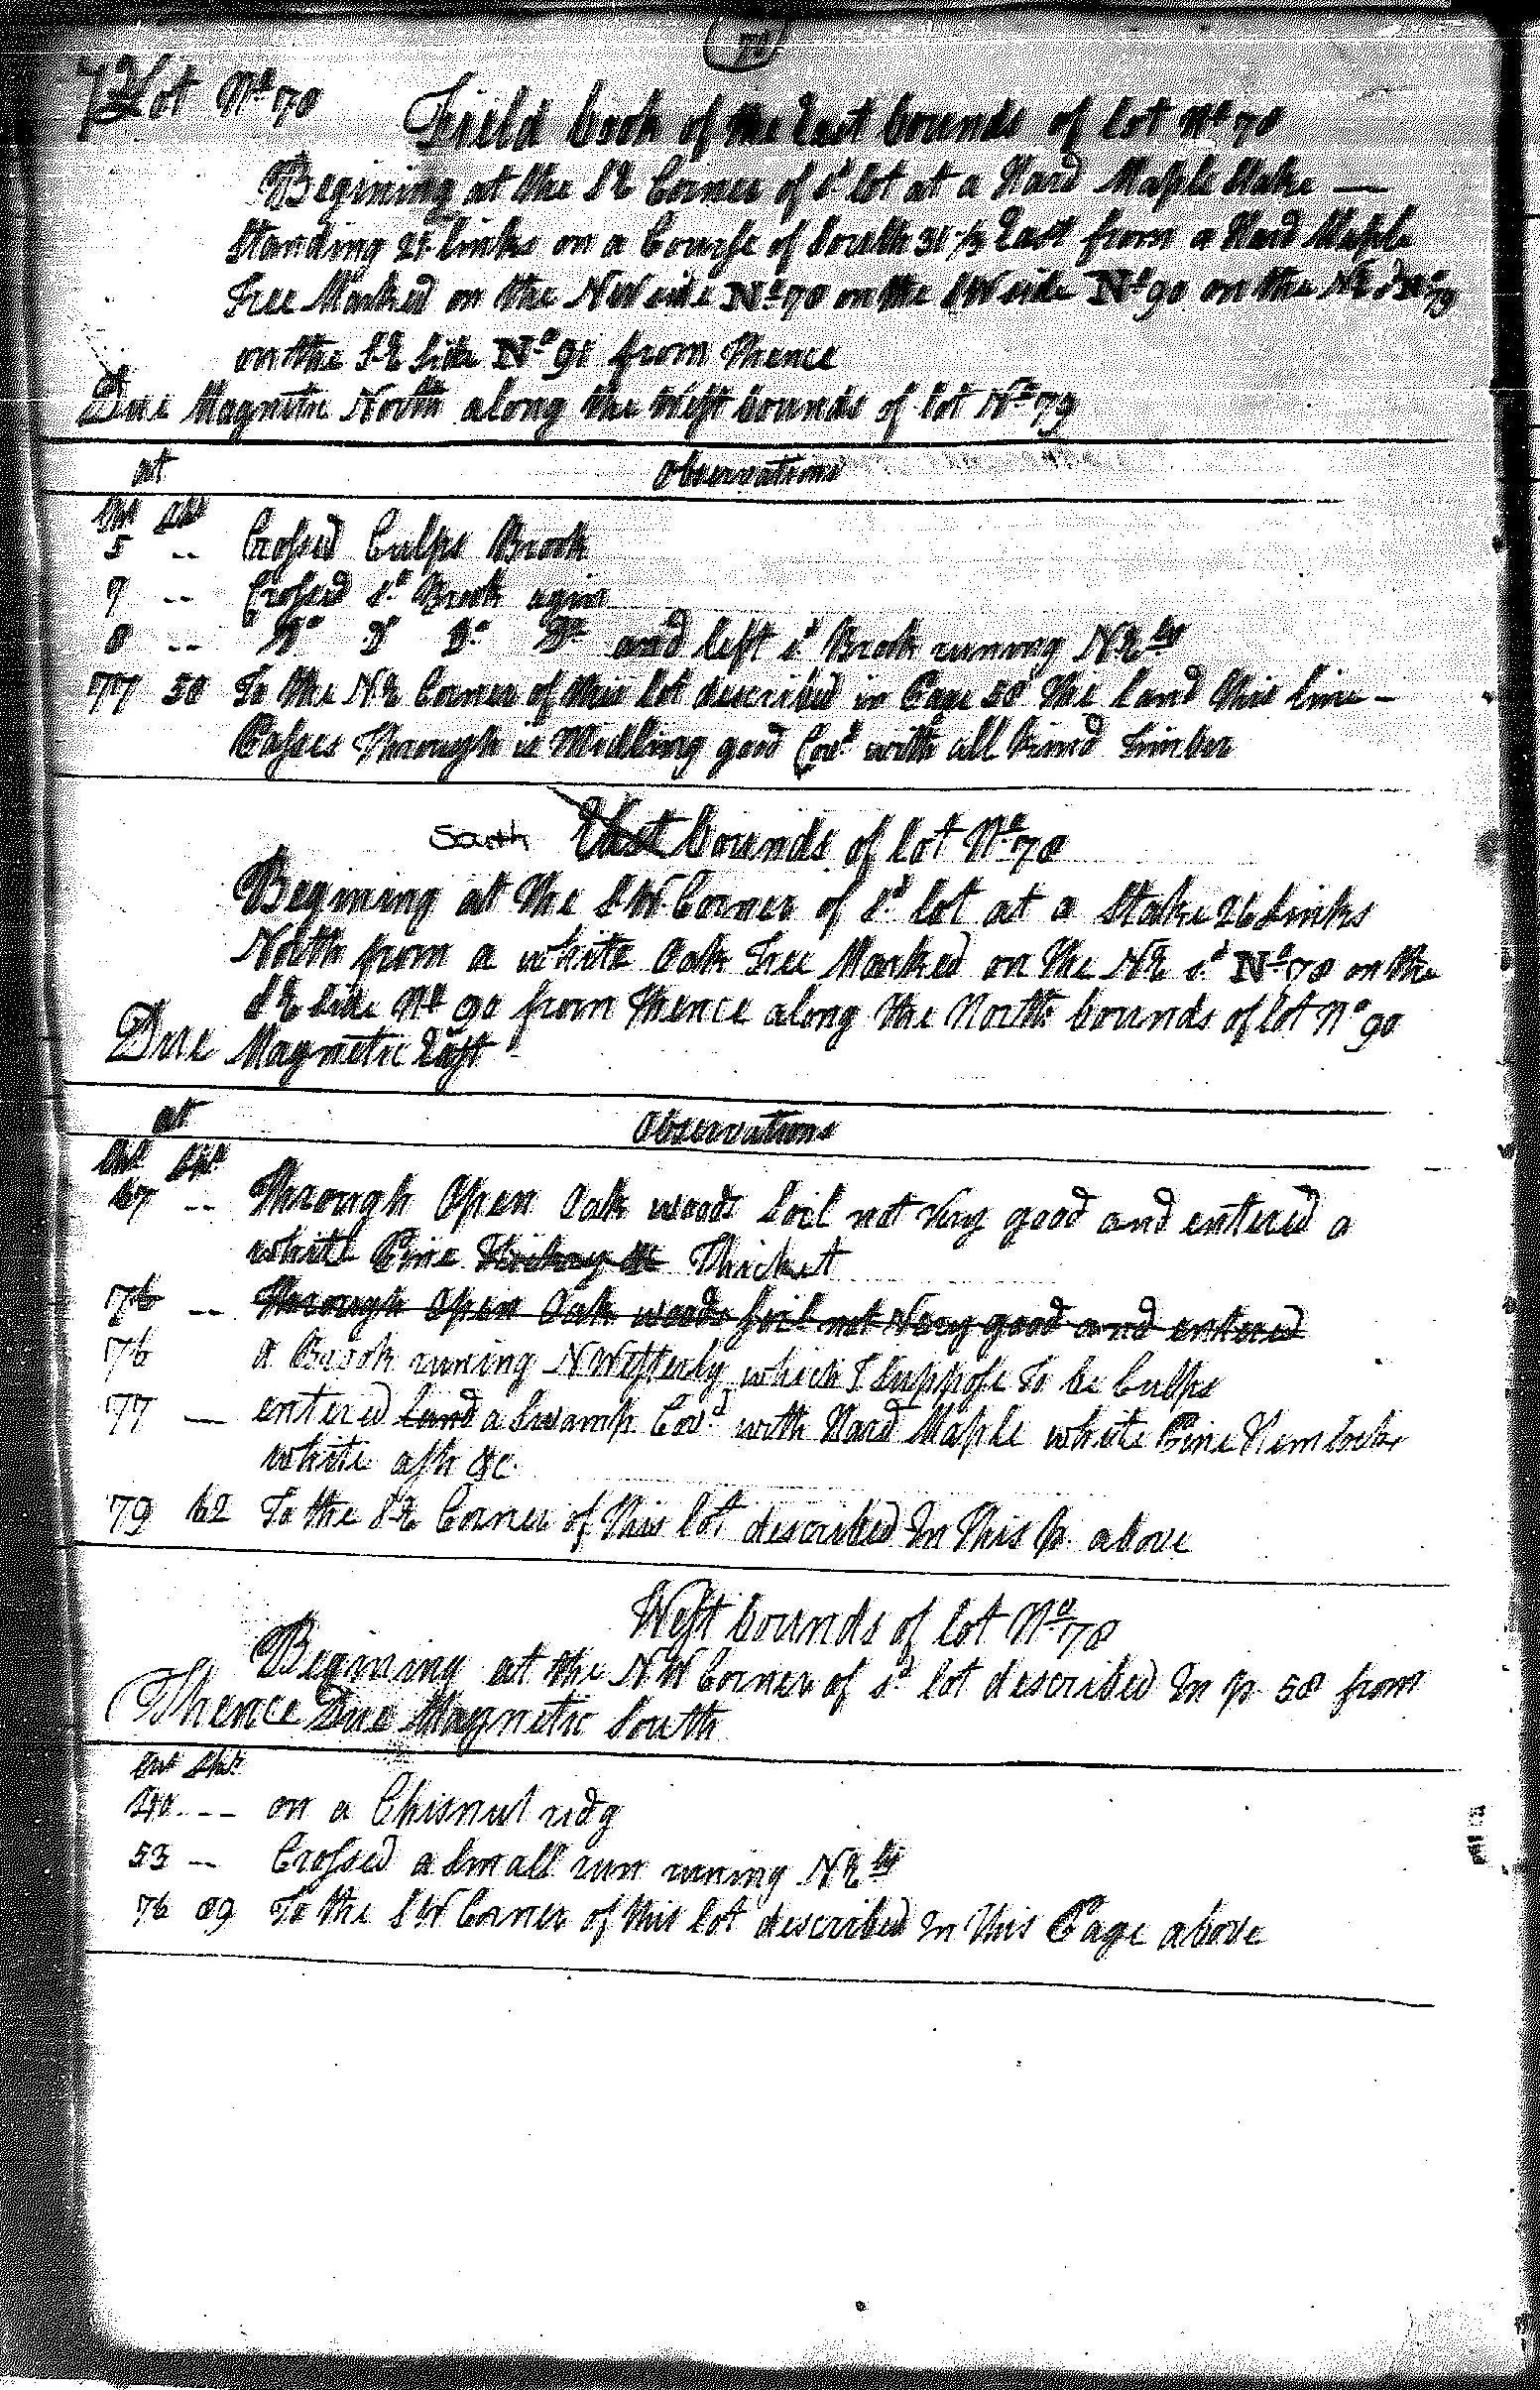 Lot No 78
Field book of the East bounds of lot No 78
Begining at the SE Corner of sd lot at a Hard Maple Stake —
Standing 21 links on a Course of South 31 1/2 East from a Hard Maple
Tree Marked on the NW side No 78 on the SW side No 90 on the NE sd No 79
on the SE side No 91 from thence
Due Magnetic North along the West bounds of lot No 79
at Observations
Chs Lks
5 -- Crossed Culps Brook
7 -- Crossed sd Brook agin
8 -- Do Do Do Do and left sd Brook runing NEly
77 50 To the NE Corner of this lot described in Page 58 the Land this line –
Passes Through is Midling good Covd with all kind Timber
South East bounds of lot No 78
Begining at the SW Corner of sd lot at a Stake 26 Links
North from a white Oak Tree Marked on the NE sd No 78 on the
SE side No 90 from thence along the North bounds of lot No 90
Due Magnetic East
at Observations
Chs Lks
67 -- Through Open Oak woods Soil not very good and entered a
white Pine Hickory &c Thicket
76 -- Through Open Oak woods Soil not Very good and entered
76 a Brook runing NWesterly which I Suppose to be Culps
77 — entered Land a Swamp Covd with Hard Maple white Pine Hemlocks
white ash &c
79 62 To the SE Corner of this lot described In this p. above
West bounds of lot No 78
Begining at the NW Corner of sd lot described In p. 58 from
Thence Due Magnetic South
Chs Lks
40 -- on a Chisnut ridg
53 -- Crossed a Small run runing NEly
76 89 To the SW Corner of this lot described In this Page above